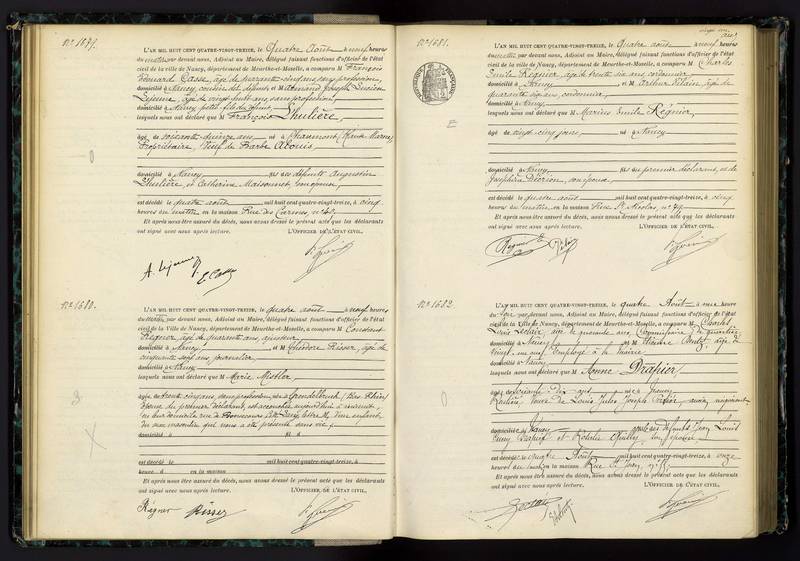 N° 1679.
L'AN MIL HUIT CENT QUATRE-VINGT-TREIZE, le Quatre Août à neuf heures
du matin par devant nous, Adjoint au Maire, délégué faisant fonctions d'officier de l'état
civil de la ville de Nancy, département de Meurthe-et-Moselle, a comparu M François
Edouard Casse, âgé de quarante cinq ans, sans profession,
domicilié à Nancy, cousin du défunt et M Armand Joseph Lucien
Lejeune, âgé de vingt huit ans, sans profession,
domicilié à Nancy
lesquels nous ont déclaré que M François Lhulière,
âgé de soixante quinze ans né à Chaumont (Haute Marne)
Propriétaire, Veuf de Barbe
domicilié à Nancy fils des défunts Augustin
Lhulière, et Catherine Maisonnet, son épouse,
est décédé le quatre août mil huit cent quatre-vingt-treize, à cinq
heures du matin en la maison Rue des Carmes, n° 40,
Et après nous être assuré du décès, nous avons dressé le présent acte que les déclarants
ont signé avec nous après lecture. L'OFFICIER DE L'ÉTAT CIVIL,
A. Lejeune E. Casse
N° 1680.
L'AN MIL HUIT CENT QUATRE-VINGT-TREIZE, le quatre août à neuf heures
du matin, par devant nous, Adjoint au Maire, délégué faisant fonctions d'officier de l'état
civil de la Ville de Nancy, département de Meurthe-et-Moselle, a comparu M Constant
Regner, âgé de quarante ans, ajusteur
domicilié à Nancy et M Théodore Risser, âgé de
cinquante sept ans, journalier
domicilié à Nancy
lesquels nous ont déclaré que M Marie Mistler
âgée de trente cinq ans, sans profession née à Grendelbruch (Bas Rhin)
épouse du premier déclarant, est accouchée aujourd'hui à
en leur domicile rue d'un enfant
du sexe masculin qui nous a été présenté sans vie,
domicilié à fils d
est décédé le mil huit cent quatre-vingt-treize, à
heure d en la maison
Et après nous être assuré du décès, nous avons dressé le présent acte que les déclarants
ont signé avec nous après lecture. L'OFFICIER DE L'ÉTAT CIVIL,
Regner Risser
N° 1681.
L'AN MIL HUIT CENT QUATRE-VINGT-TREIZE, le Quatre août à neuf heures
du matin par devant nous, Adjoint au Maire, délégué faisant fonctions d'officier de l'état
civil de la ville de Nancy, département de Meurthe-et-Moselle, a comparu M Charles
Emile Regnier, âgé de trente six ans, cordonnier,
domicilié à Nancy et M Arthur Vilain, âgé de
quarante six ans, cordonnier,
domicilié à Nancy,
lesquels nous ont déclaré que M Marius Emile Regnier,
âgé de vingt cinq jours, né à Nancy
domicilié à Nancy, fils du premier déclarant, et de
Joséphine son épouse,
est décédé le quatre août mil huit cent quatre-vingt-treize, à cinq
heures du matin en la maison Rue St Nicolas, n° 74.
Et après nous être assuré du décès, nous avons dressé le présent acte que les déclarants
ont signé avec nous après lecture. L'OFFICIER DE L'ÉTAT CIVIL,
Regnier E
N° 1682
L'AN MIL HUIT CENT QUATRE-VINGT-TREIZE, le quatre Août à une heure
du soir par devant nous, Adjoint au Maire, délégué faisant fonctions d'officier de l'état
civil de la Ville de Nancy, département de Meurthe-et-Moselle, a comparu M Charles
Louis âgé de quarante ans, Commissaire de quartier
domicilié à Nancy et M Victor âgé de
vingt neuf Employé à la mairie
domicilié à Nancy
lesquels nous ont déclaré que M Anne Drapier,
âgée de soixante dix née à Nancy
Rentière, veuve de Louis Jules Joseph
domiciliée à Nancy fille des défunts Jean Louis
et Rosalie son épouse
est décédée le quatre Août mil huit cent quatre-vingt-treize, à onze
heures du matin en la maison Rue St Jean, n°
Et après nous être assuré du décès, nous avons dressé le présent acte que les déclarants
ont signé avec nous après lecture. L'OFFICIER DE L'ÉTAT CIVIL,